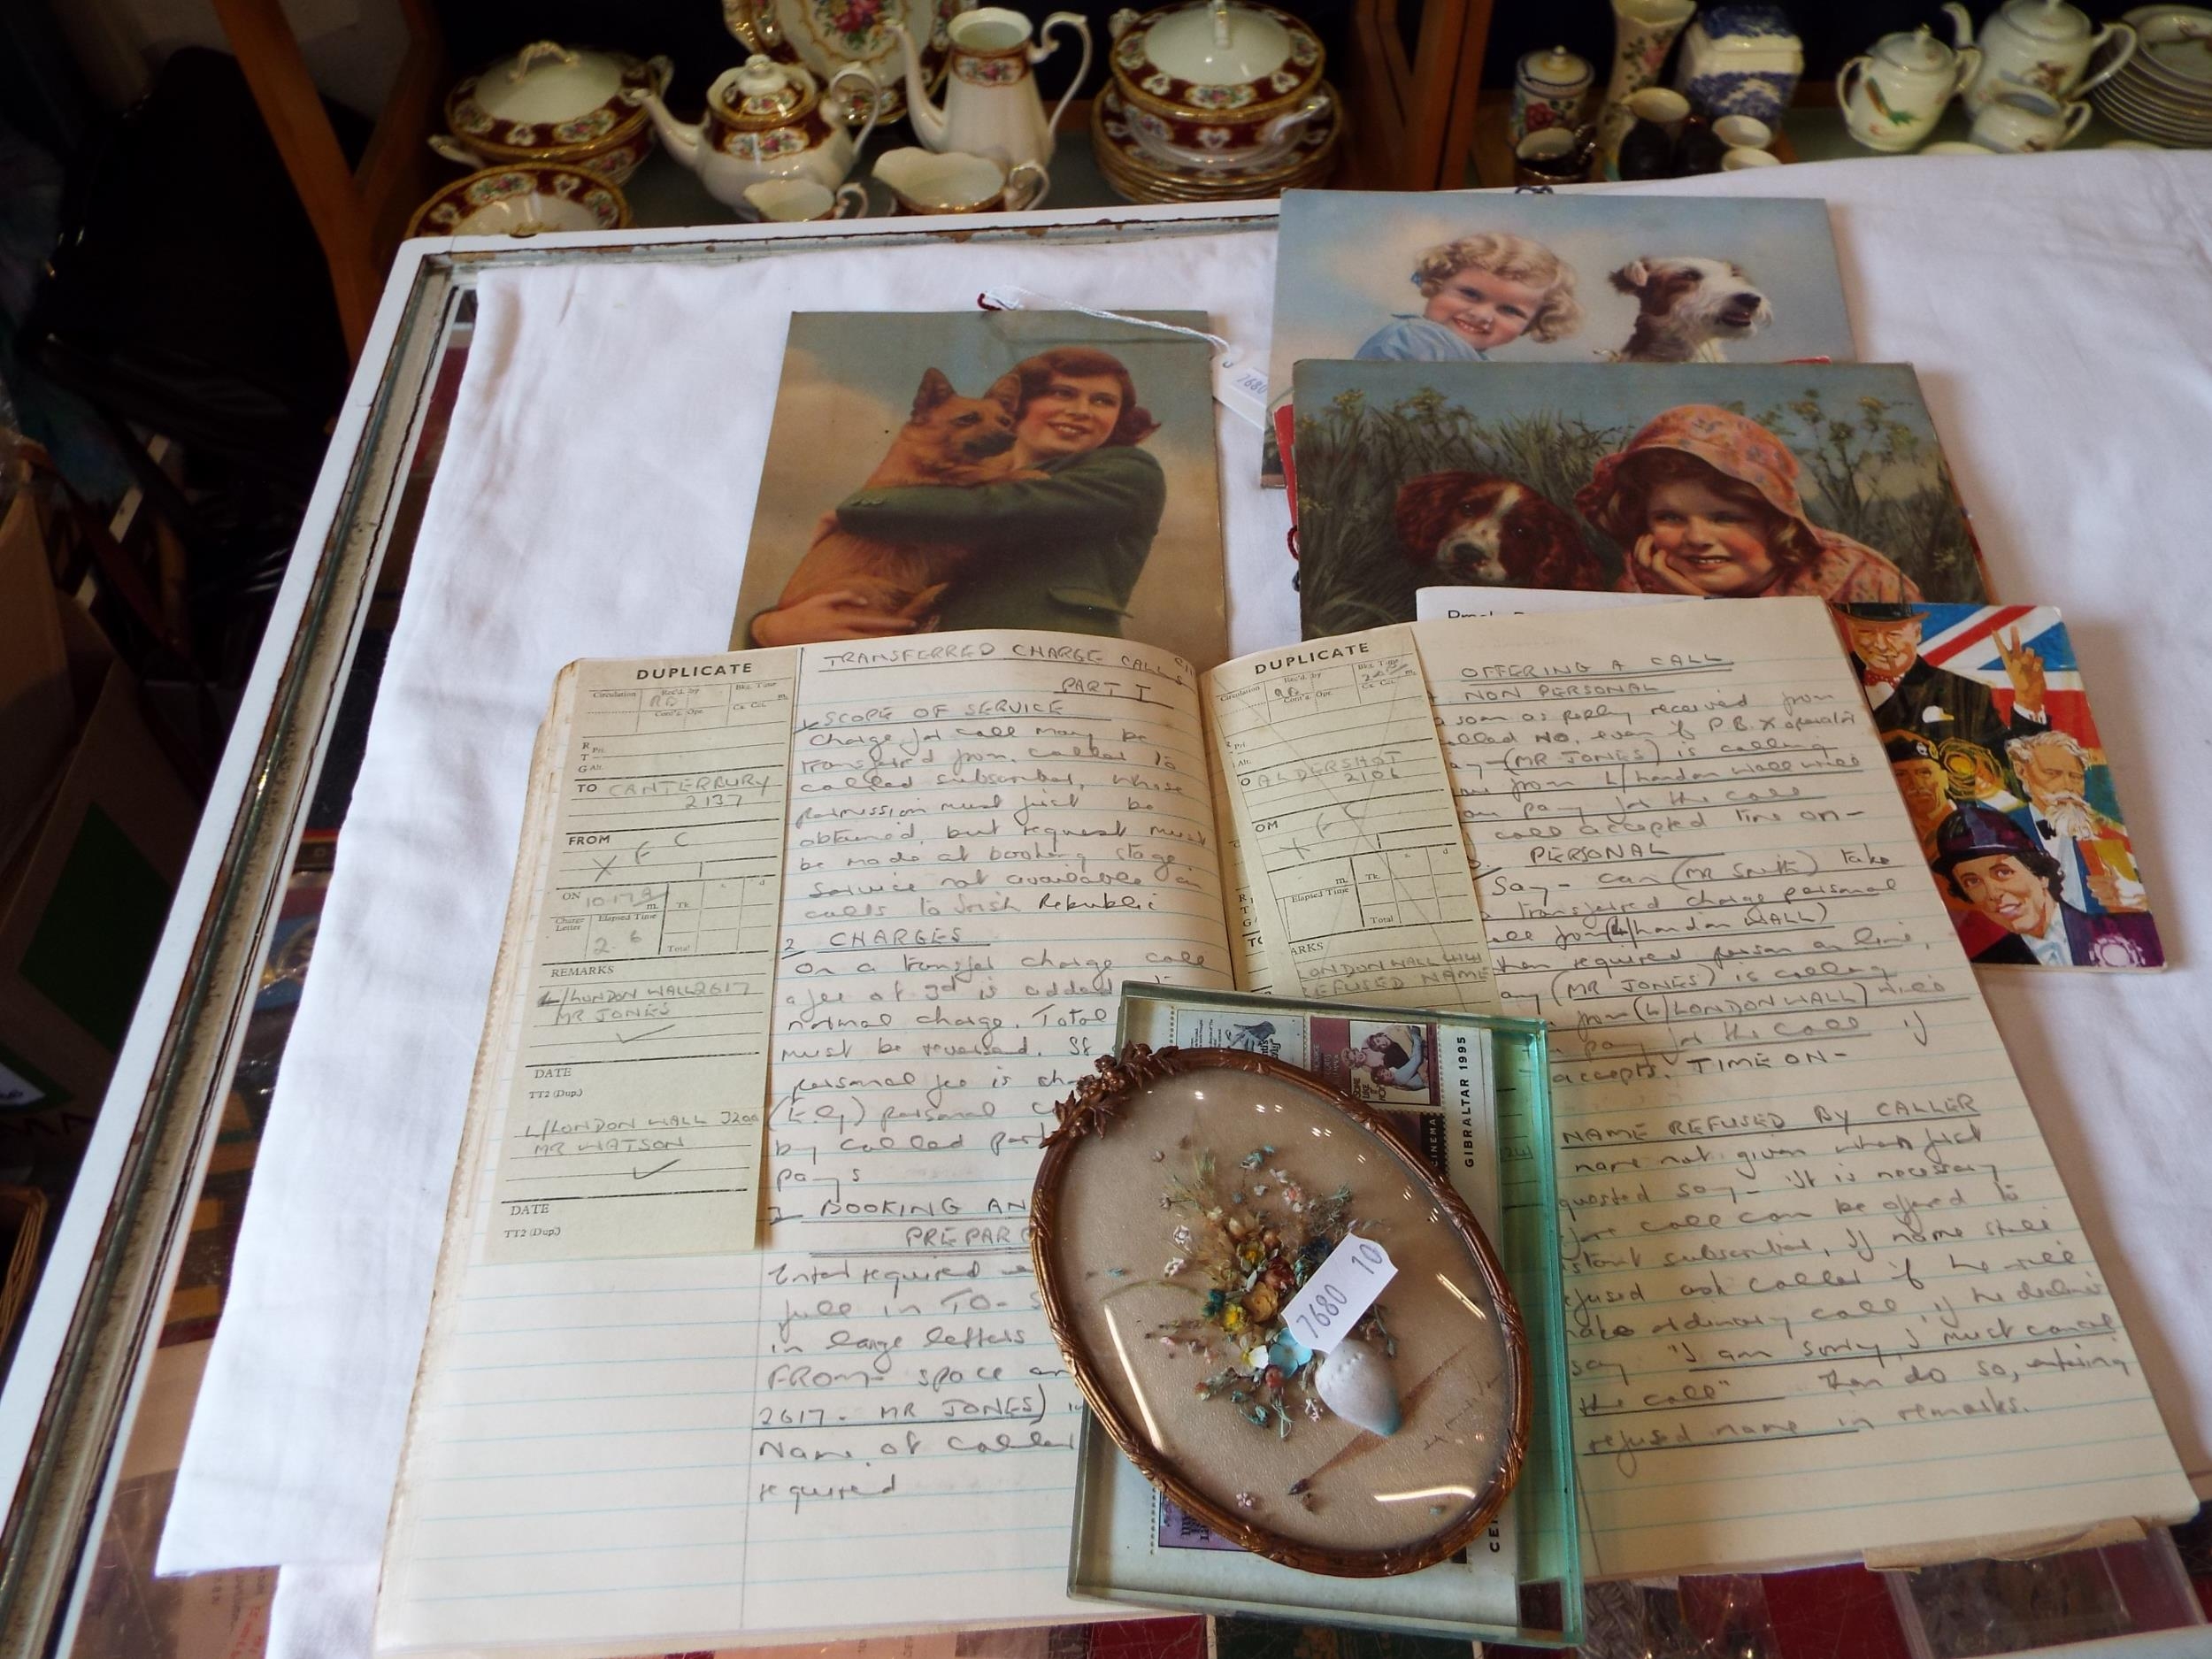 DUPLICATE
Circulation
Rec'd. by
Bkg. Time
m.
RB
Cont'g. Opr.
Ca. Ccl.
R Pri.
T
G Alt.
TO CANTERBURY
2137
FROM
X F C
ON
m.
Tk.
Charge Letter
Elapsed Time
2. 6
Total
REMARKS
L/LONDON WALL 2617
MR JONES
DATE
TT2 (Dup.)
L/LONDON WALL 3200
MR WATSON
DATE
TT2 (Dup.)
TRANSFERRED CHARGE CALLS
PART I
1 SCOPE OF SERVICE
Charge for call may be
transferred from caller to
called subscriber, whose
permission must first be
obtained, but request must
be made at booking stage
Service not available in
calls to Irish Republic
2 CHARGES
On a transfer charge call
a fee of 3d is added
normal charge. Total
must be reversed. If
personal fee is
(E.g) personal
by called
pays
3 BOOKING AN
PREPAR
Enter required
full in TO-
in large letters
FROM- space
2617. MR JONES)
Name of caller
required
DUPLICATE
Circulation
Rec'd. by
Bkg. Time
RB
Cont'g. Opr.
Ca. Ccl.
Pri.
Alt.
O ALDERSHOT
2106
OM
X F C
m.
Tk.
Elapsed Time
Total
ARKS
LONDON WALL
REFUSED NAME
OFFERING A CALL
NON PERSONAL
soon as reply received from
called NO, even if P.B.X operator
(MR JONES) is calling
from L/London Wall will
pay for the call
call accepted time on-
PERSONAL
Say- can (MR Smith) take
transferred charge personal
call from (L/London WALL)
when required person on line,
(MR JONES) is calling
from (L/LONDON WALL) will
pay for the call if
accepts. TIME ON-
NAME REFUSED BY CALLER
name not given when first
quested say- It is necessary
call can be offered to
subscriber, If name still
fused ask caller if he will
make ordinary call if he declines
say "I am sorry I must cancel
the call" then do so, entering
refused name in remarks.
GIBRALTAR 1995
CINEMA
CE
7680 10
7680